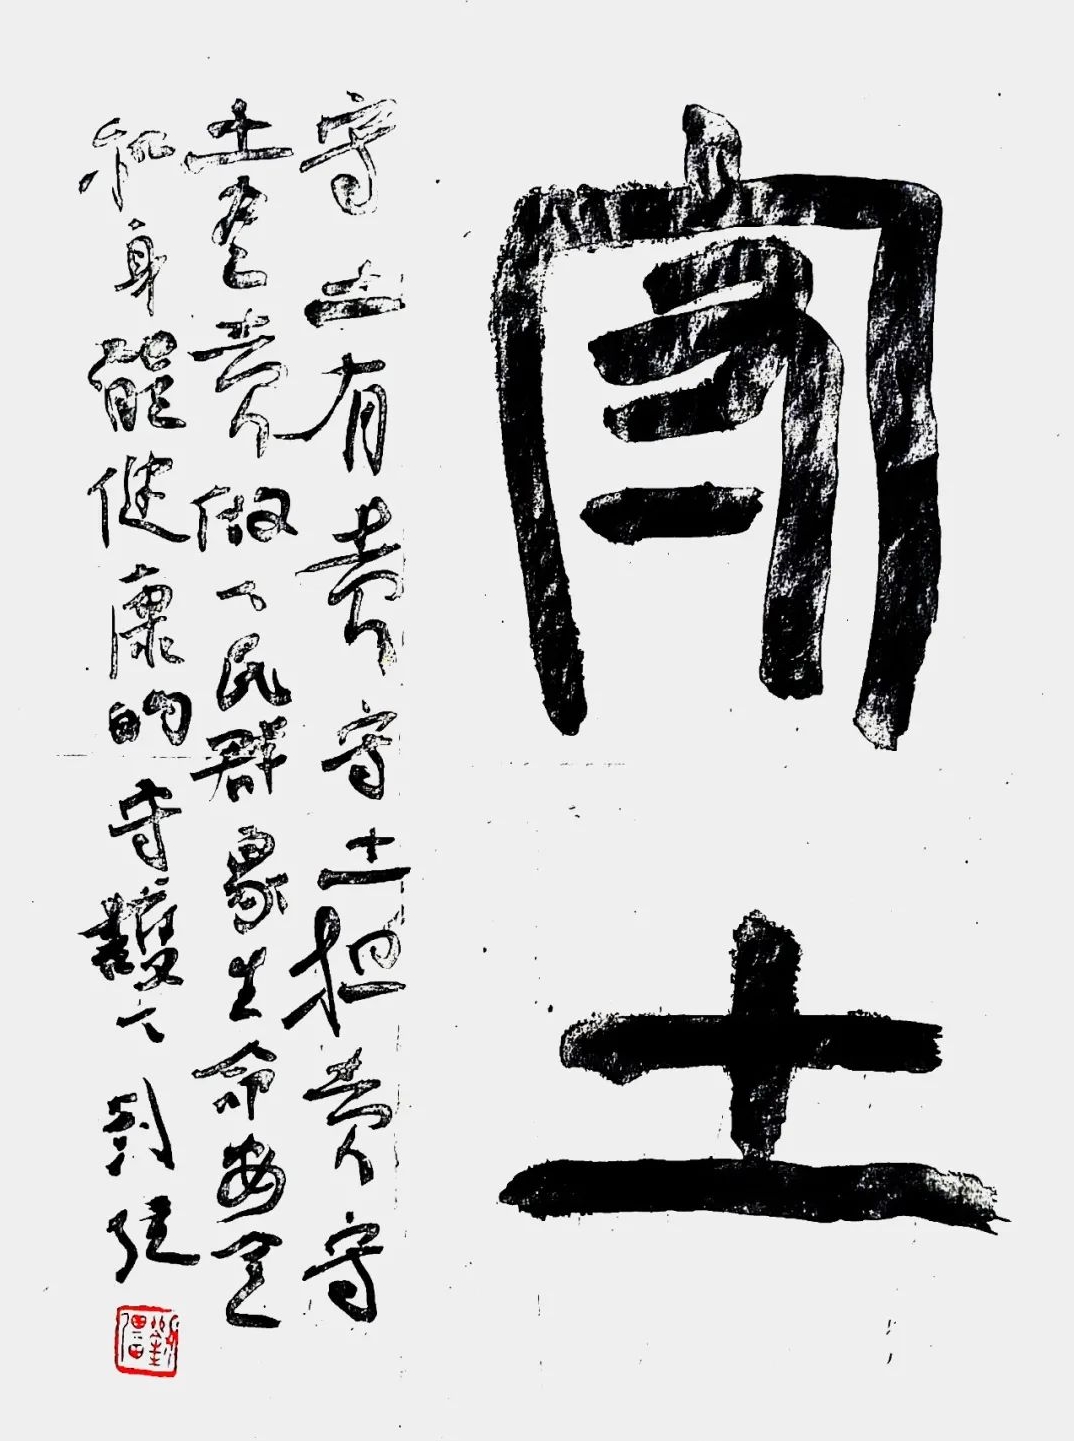 守土
守土有责守土担责守
土尽责做人民群众生命安全
和身体健康的守護人刘